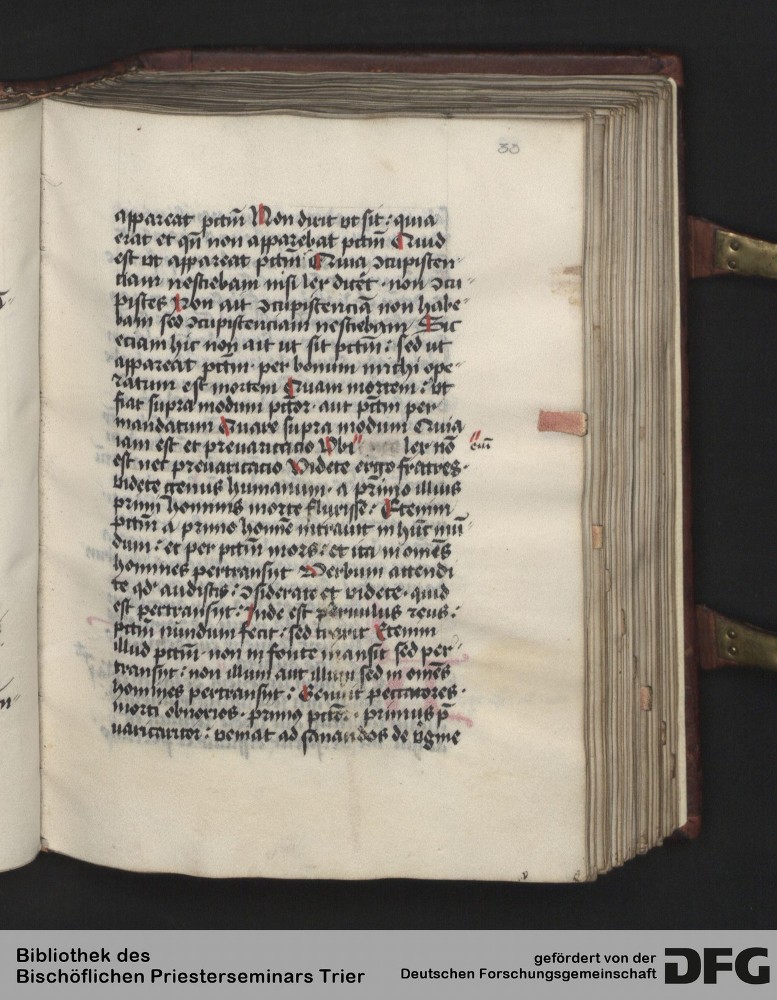 33
appareat pctm̄ Non dicit vt sit : quia
erat et qn̄ non apparebat pctm̄ Quid
est vt appareat pctm̄ Quia ꝯcupiscen
ciam nesciebam nisi lex dicēt · non ꝯcu
pisces Non ait ꝯcupiscenciā non habe
bam sed ꝯcupiscenciam nesciebam Sic
eciam hic non ait ut sit pctm̄ : sed ut
appareat pctm̄ · per bonum michi ope
ratum est mortem Quam mortem : vt
fiat supra modum pctōr · aut pctm̄ per
mandatum Quare supra modum Quia
iam est et preuaricacio Vbi lex nō
em̄
est nec preuaricacio Videte ergo fratres ·
videte genus humanum · a primo illius
primi hominis morte fluxisse : Etenim
pctm̄ a primo homīe intrauit in hūc mū
dum : et per pctm̄ mors : et ita in omēs
homines pertransijt Verbum attendi
te qd̕ audistis : ꝯsiderate et videte · quid
est pertransijt : Inde est paruulus reus :
pctm̄ nundum fecit : sed traxit Etenim
illud pctm̄ · non in fonte mansit sed per
transijt : non illum aut illum sed in omēs
homines pertransijt : Genuit peccatores ·
morti obnoxios · primus pctōr · primus p̄
uaricator : veniat ad sanandos de v̄gine
Bibliothek des
Bischöflichen Priesterseminars Trier
gefördert von der
Deutschen Forschungsgemeinschaft
DFG